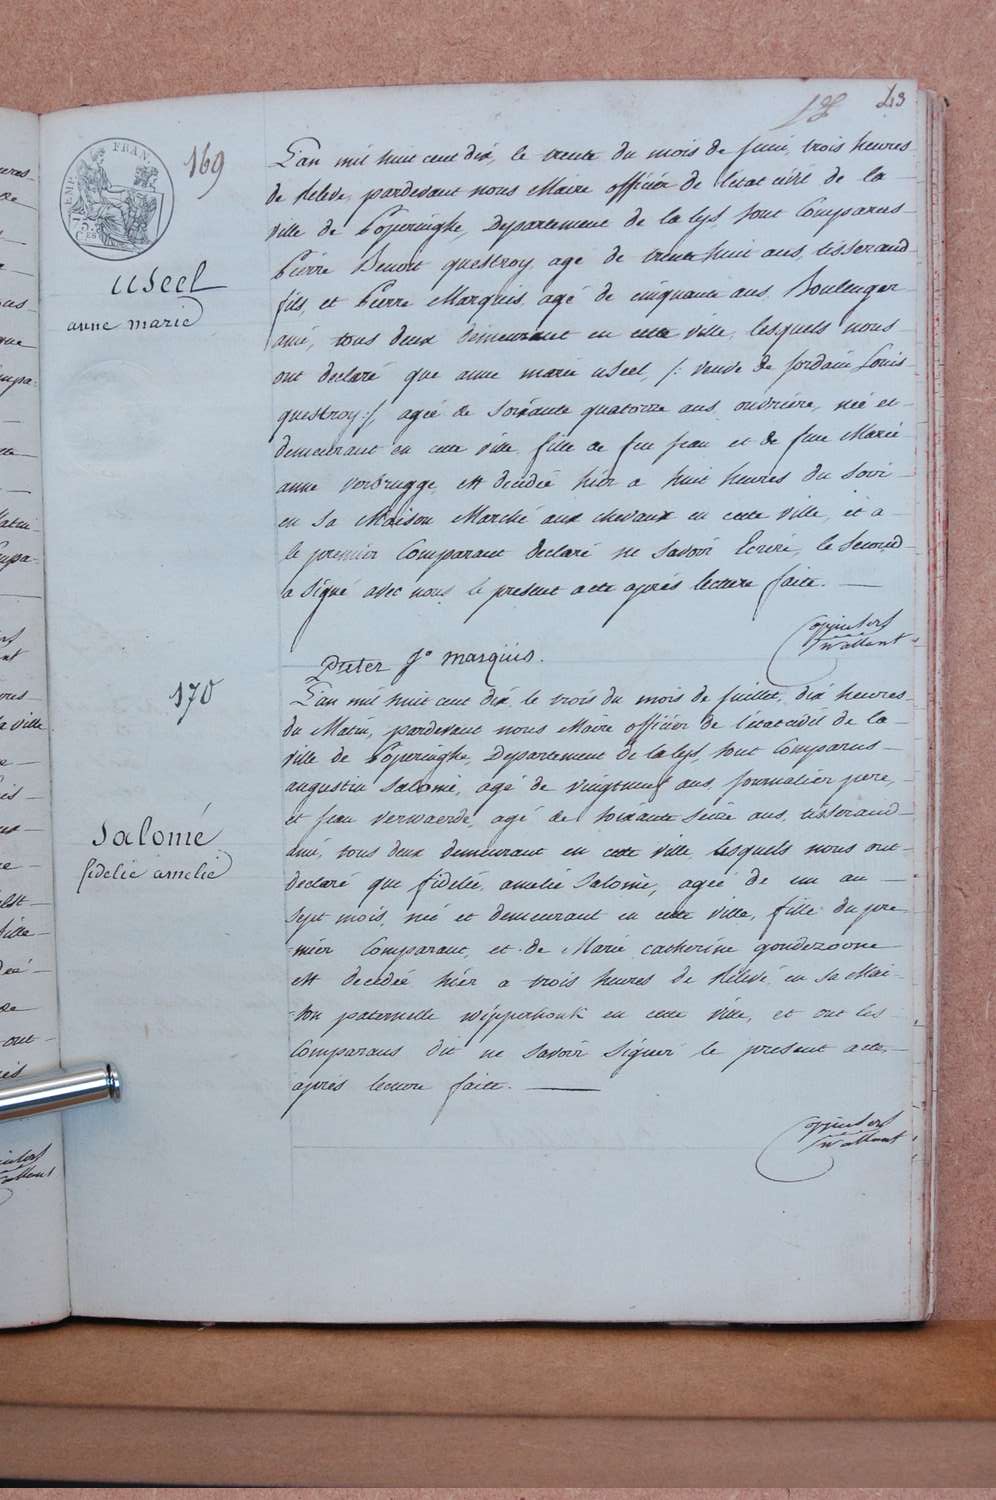 43
EMP. FRAN.
169
useel
anne marie
L'an mil huit cent dix, le trente du mois de juin, trois heures
de Relevé, pardevant nous Maire officier de l'état civil de la
ville de Poperinghe, Departement de la lys, sont Comparus
Pierre Benoit questroy, agé de trente huit ans, tisserand
fils, et Pierre Marquis, agé de cinquante ans, Boulenger
ami, tous deux demeurant en cette ville, lesquels nous
ont declaré que anne marie useel, /: veuve de Jordain Louis
questroy :/, agée de soixante quatorze ans, ouvrière, née et
demeurant en cette ville, fille de feu jean et de feue Marie
anne verbrugge, est decédée hier a huit heures du soir
en sa Maison Marché aux chevaux en cette ville, et a
le premier Comparant declaré ne savoir Ecrire, le second
a signé avec nous le present acte après lecture faite.
Pieter Jo marquis.
170
Salomé
fidelie amelie
L'an mil huit cent dix, le trois du mois de juillet, dix heures
du Matin, pardevant nous Maire officier de l'état civil de la
ville de Poperinghe, Departement de la lys, sont Comparus
augustin Salomé, agé de vingtneuf ans, journalier pere,
et jean verwaerde, agé de soixante seize ans, tisserand
ami, tous deux demeurant en cette ville, lesquels nous ont
declaré que fidelie, amelie Salomé, agée de un an
sept mois, née et demeurant en cette ville, fille du pre
mier Comparant, et de Marie catherine goudezoone
est decédée hier a trois heures de Relevé, en sa Mai-
son paternelle wipperhouk en cette ville, et ont les
Comparans dit ne savoir signer le present acte,
après lecture faite.